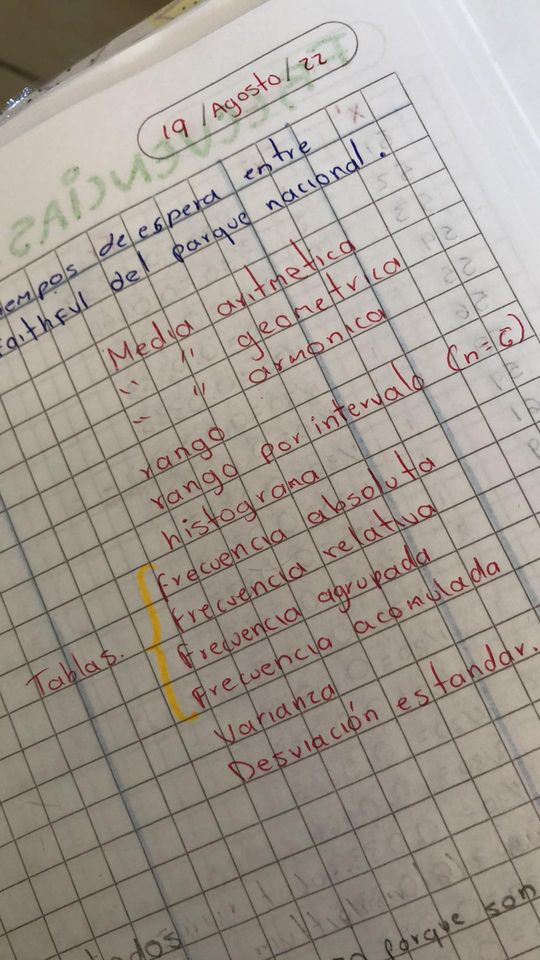 19/Agosto/22
iempos de espera entre
faithful del parque nacional.
Media aritmetica
" " geometrica
" " armonica
rango
rango por intervalo (n=6)
histograma
frecuencia absoluta
frecuencia relativa
Tablas. frecuencia agrupada
frecuencia acomulada
Varianza
Desviación estandar.
porque son